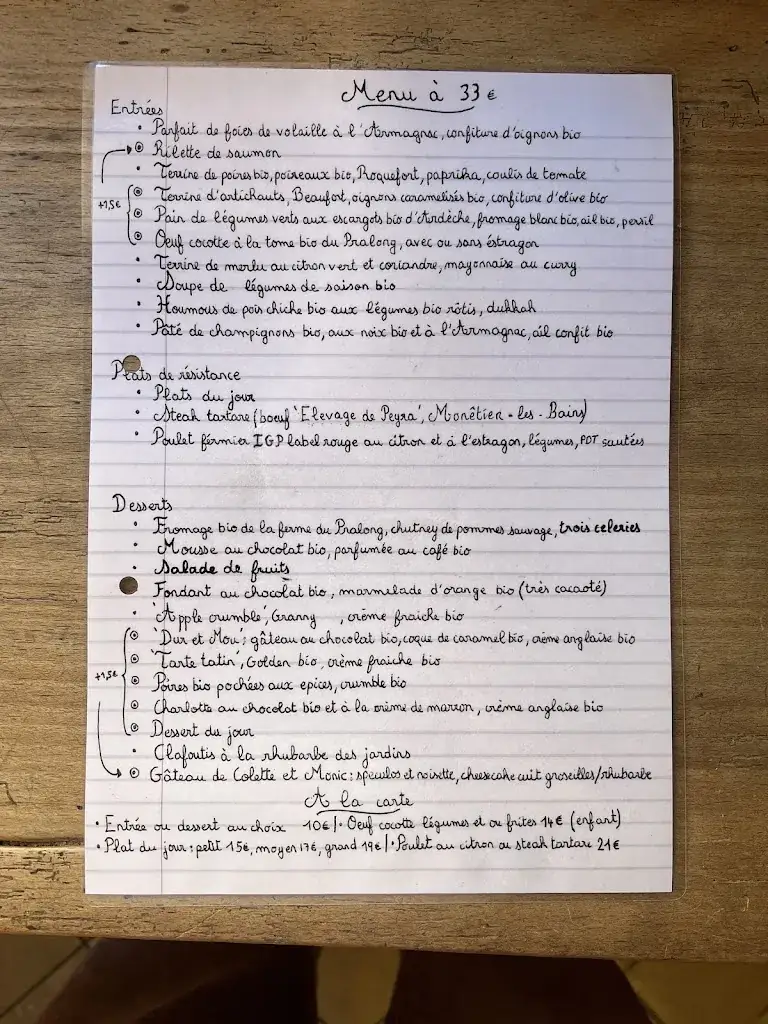 Menu à 33 €
Entrées
• Parfait de foies de volaille à l'Armagnac, confiture d'oignons bio
Rilette de saumon
• Terrine de poires bio, poireaux bio, Roquefort, paprika, coulis de tomate
+1,5€
Terrine d'artichauts, Beaufort, oignons caramelisés bio, confiture d'olive bio
Pain de légumes verts aux escargots bio d'Ardèche, fromage blanc bio, ail bio, persil
Oeuf cocotte à la tome bio du Pralong, avec ou sans éstragon
• Terrine de merlu au citron vert et coriandre, mayonnaise au curry
• Soupe de légumes de saison bio
• Houmous de pois chiche bio aux légumes bio rôtis, dukkah
• Pâté de champignons bio, aux noix bio et à l'Armagnac, ail confit bio
Plats de résistance
• Plats du jour
• Steak tartare (boeuf 'Elevage de Peyra', Monêtier-les-Bains)
• Poulet férmier IGP label rouge au citron et à l'estragon, légumes, PDT sautées
Desserts
• Fromage bio de la ferme du Pralong, chutney de pommes sauvage, trois celeries
• Mousse au chocolat bio, parfumée au café bio
• Salade de fruits
Fondant au chocolat bio, marmelade d'orange bio (très cacaoté)
• 'Apple crumble', Granny , crème fraiche bio
'Dur et Mou'; gâteau au chocolat bio, coque de caramel bio, crème anglaise bio
+1,5€
'Tarte tatin', Golden bio, crème fraiche bio
Poires bio pochées aux epices, crumble bio
Charlotte au chocolat bio et à la crème de marron, crème anglaise bio
Dessert du jour
• Clafoutis à la rhubarbe des jardins
Gâteau de Colette et Monic: speculos et noisette, cheesecake cuit groseilles/rhubarbe
A la carte
• Entrée ou dessert au choix 10€/• Oeuf cocotte légumes et ou frites 14€ (enfant)
• Plat du jour: petit 15€, moyen 17€, grand 19€/• Poulet au citron ou steak tartare 21€